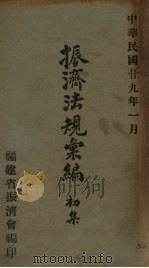 中華民國廿九年一月
振濟法規彙編
初集
福建省振濟會編印